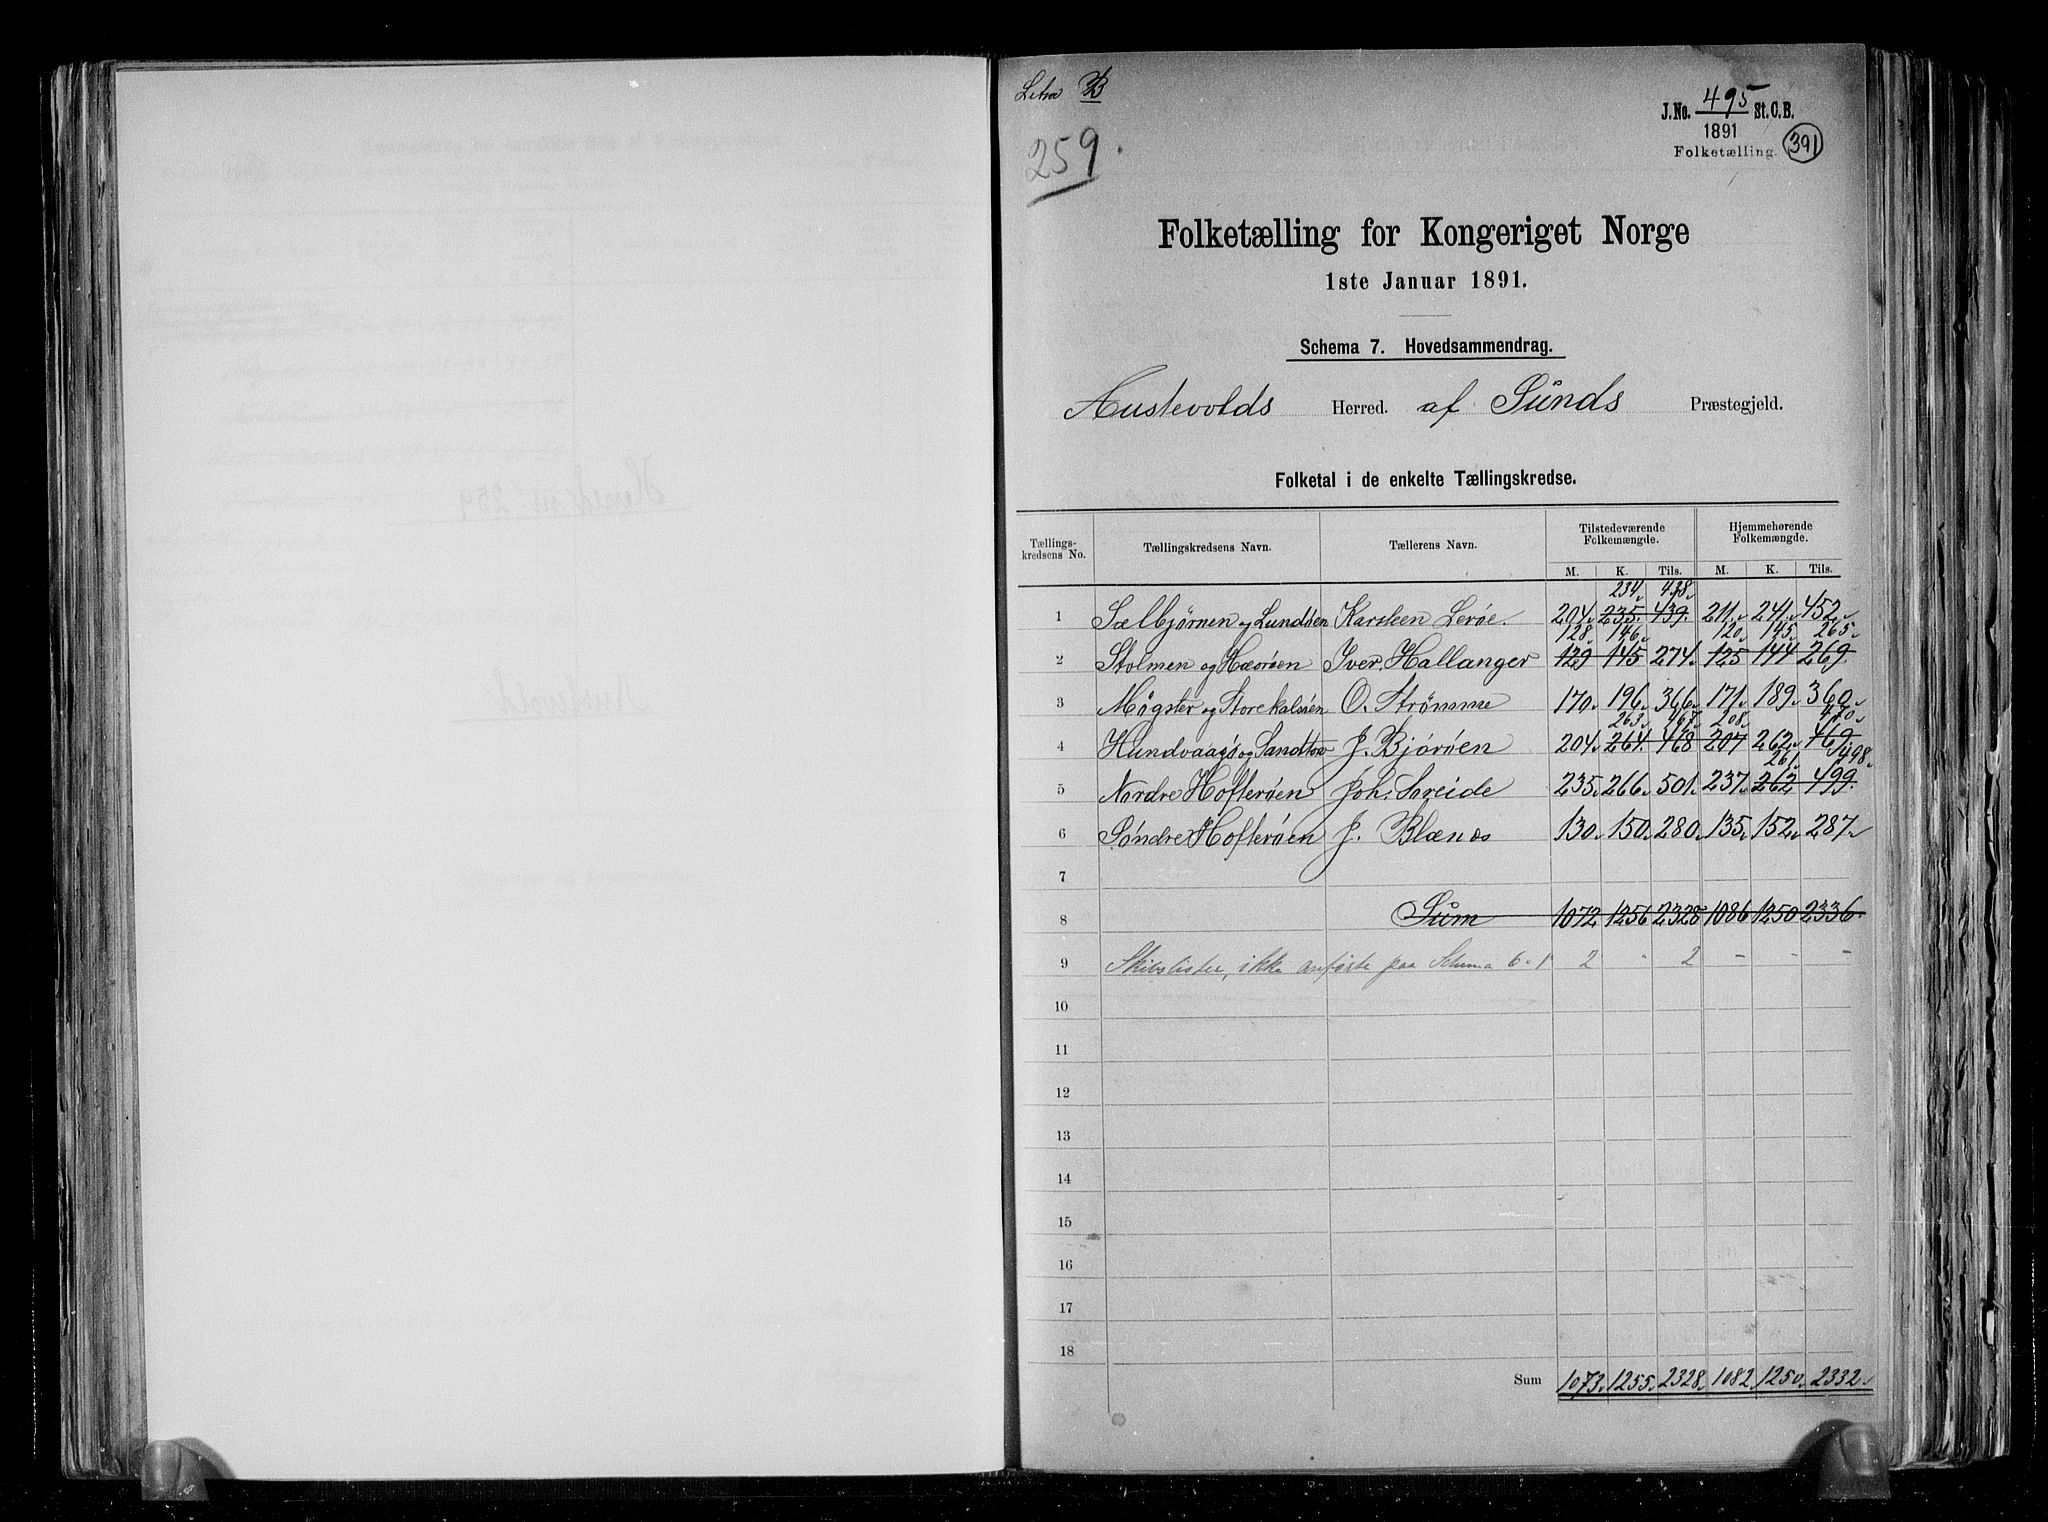 Litra B
259.
J.No. 495 St.C.B.
1891
Folketælling. 391
Folketælling for Kongeriget Norge
1ste Januar 1891.
Schema 7. Hovedsammendrag.
Austevolds Herred. af Sunds Præstegjeld.
Folketal i de enkelte Tællingskredse.
Tællings-kredsens No. Tællingskredsens Navn. Tællerens Navn. Tilstedeværende Folkemængde. Hjemmehørende Folkemængde.
M. K. Tils. M. K. Tils.
234 438
1 Sælbjørnen og Lundøen Karsten Lerøe. 204 235 439 211 241 452
128 146 120 145 265
2 Stolmen og Hæorøen Iver Hallanger 129 145 274 125 144 269
3 Møgster og Storekalsøen O. Strømme 170 196 366 171 189 360
263 467 208 470
4 Hundvaagø og Sandtorv J. Bjørøen 204 264 468 207 262 469
261 498
5 Nordre Hofterøen Joh. Soreide 235 266 501 237 262 499
6 Søndre Hofterøen J. Blænes 130 150 280 135 152 287
7
8 Sum 1072 1256 2328 1086 1250 2336
9 Skibslister, ikke anførte paa Schema 6 - 1 2 - 2 - - -
10
11
12
13
14
15
16
17
18
Sum 1073 1255 2328 1082 1250 2332